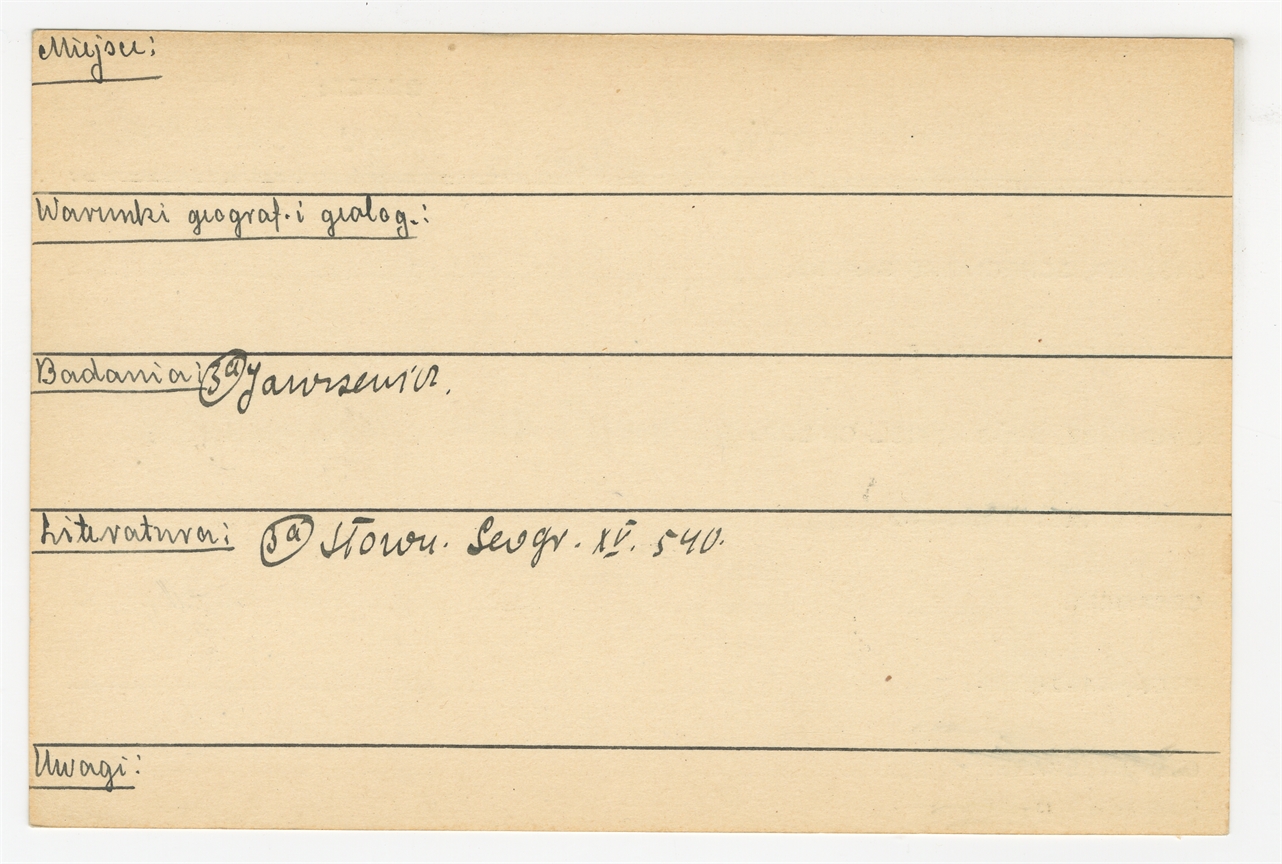 Miejsce:
Warunki geograf. i geolog.:
Badania: 3a Jaworsewicz.
Literatura: 3a Słown. Geogr. XV. 540.
Uwagi: